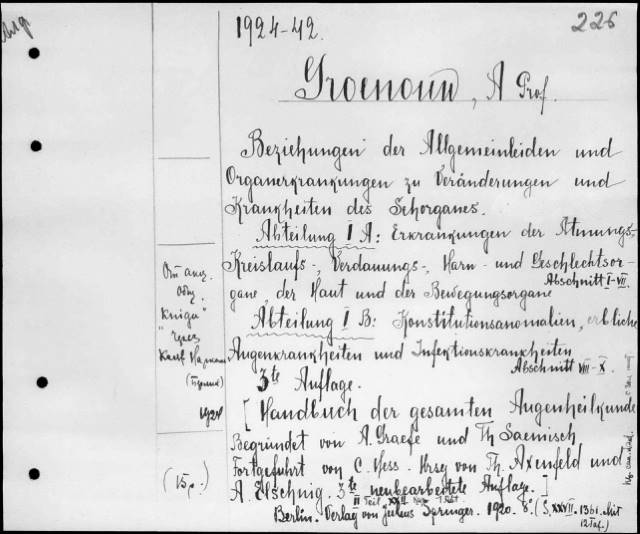 1924-42.
226
Groenouw, A Prof.
Beziehungen der Allgemeinleiden und
Organerkrankungen zu Veränderungen und
Krankheiten des Sehorganes.
Abteilung I A: Erkrankungen der Atmungs-,
Kreislaufs-, Verdauungs-, Harn- und Geschlechtsor-
Abschnitt I-VII.
gane, der Haut und der Bewegungsorgane
Abteilung I B: Konstitutionsanomalien, erbliche
Augenkrankheiten und Infektionskrankheiten
Abschnitt VIII-X.
3te Auflage.
[Handbuch der gesamten Augenheilkunde
Begründet von A. Graefe und Th Saemisch
Fortgeführt von C. Hess. Hrsg von Th. Axenfeld und
A. Elschnig. 3te neubearbeitete Auflage.]
II Teil. XXII
Berlin. Verlag von Julius Springer. 1920. 8. (S. XXVII. 1361. Mit
12 Taf.)
От акц.
Общ.
"Книга"
через
1924
(15 р.)